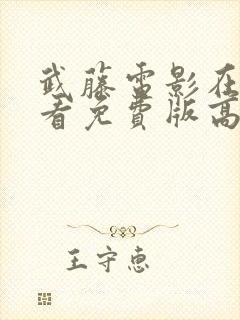 武藤雷影在
看免費版高
王守惠